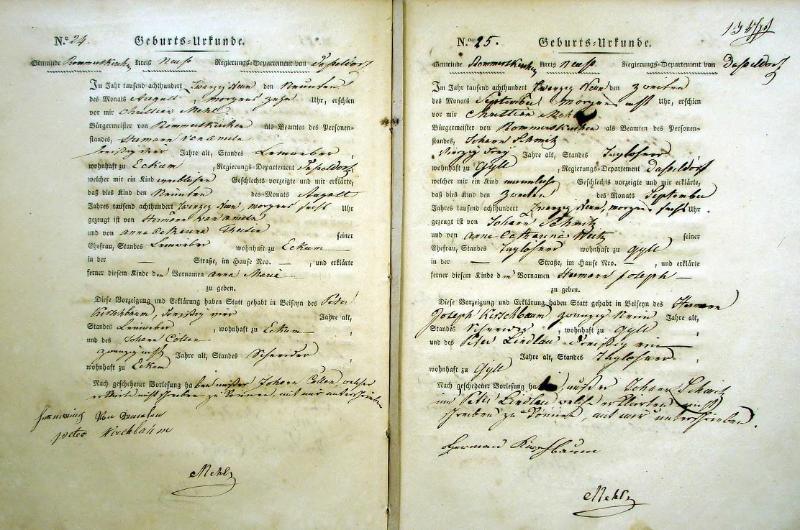 No. 24. Geburts-Urkunde.
Gemeinde Rommerskirchen Kreis Neuss Regierungs-Departement von Düsseldorf
Im Jahr tausend achthundert zwanzig neun den Neunten
des Monats August, morgens zehn Uhr, erschien
vor mir Christian Mehl
Bürgermeister von Rommerskirchen als Beamten des Personen-
standes, Herman
Jahre alt, Standes Leineweber
wohnhaft zu Eckum, Regierungs-Departement Düsseldorf
welcher mir ein Kind weiblichen Geschlechts vorzeigte und mir erklärte,
daß dies Kind den Neunten des Monats August
Jahres tausend achthundert zwanzig neun, morgens sechs Uhr
gezeugt ist von Herman
und von anna
seiner
Ehefrau, Standes Leineweber wohnhaft zu Eckum
in der Straße, im Hause Nro. , und erklärte
ferner diesem Kinde den Vornamen anna Maria
zu geben.
Diese Vorzeigung und Erklärung haben Statt gehabt in Beiseyn des Peter
Kirschbaum, dreißig vier Jahre alt,
Standes Leineweber, wohnhaft zu Eckum
und des Johann Cöllen
zwanzig acht Jahre alt, Standes Schneider
wohnhaft zu Eckum
Nach geschehener Vorlesung haben außer Johann Cöllen welcher
erklärte nicht schreiben zu können, mit mir unterschrieben
peter Kirschbahm
Mehl
No. 25. Geburts-Urkunde.
Gemeinde Rommerskirchen Kreis Neuss Regierungs-Departement von Düsseldorf
Im Jahr tausend achthundert zwanzig neun den zweiten
des Monats September morgens acht Uhr, erschien
vor mir Christian Mehl
Bürgermeister von Rommerskirchen als Beamten des Personen-
standes, Johann Schmitz
Jahre alt, Standes Taglöhner
wohnhaft zu Gyll, Regierungs-Departement Düsseldorf
welcher mir ein Kind männlich Geschlechts vorzeigte und mir erklärte,
daß dies Kind den zweiten des Monats September
Jahres tausend achthundert zwanzig neun, morgens sechs Uhr.
gezeugt ist von Johann Schmitz
und von anna Catharina
seiner
Ehefrau, Standes Taglöhner wohnhaft zu Gyll
in der Straße, im Hause Nro. , und erklärte
ferner diesem Kinde den Vornamen Herman Joseph
zu geben.
Diese Vorzeigung und Erklärung haben Statt gehabt in Beiseyn des Herman
Joseph Kirschbaum zwanzig neun Jahre alt,
Standes Schneider, wohnhaft zu Gyll
und des Peter Lindlau dreißig ein
Jahre alt, Standes Taglöhner
wohnhaft zu Gyll
Nach geschehener Vorlesung haben außer Johann Schmitz
und Peter Lindlau welche erklärten nicht
schreiben zu können mit mir unterschrieben.
Herman Kirschbaum
Mehl